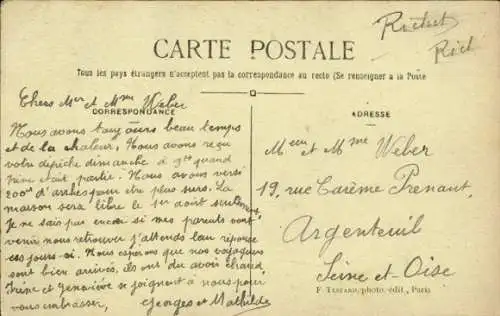 CARTE POSTALE
Tous les pays étrangers n'acceptent pas la correspondance au recto (Se renseigner à la Poste
Chers Mr et Mme Weber
CORRESPONDANCE
Nous avons toujours beau temps
et de la chaleur. Nous avons reçu
votre dépêche dimanche à 9ht quand
Irène était partie. Nous avons versé
200f d'arrhes pour être plus sûrs. La
maison sera libre le 1er août seulement.
Je ne sais pas encore si mes parents vont
venir nous retrouver j'attends leur réponse
ces jours-ci. Nous espérons que nos voyageurs
sont bien arrivés, ils ont dû avoir chaud.
Irène et Geneviève se joignent à nous pour
vous embrasser, Georges et Mathilde
ADRESSE
Meur et Mme Weber
19, rue Carème Prenant
Argenteuil
Seine-et-Oise
photo. édit., Paris